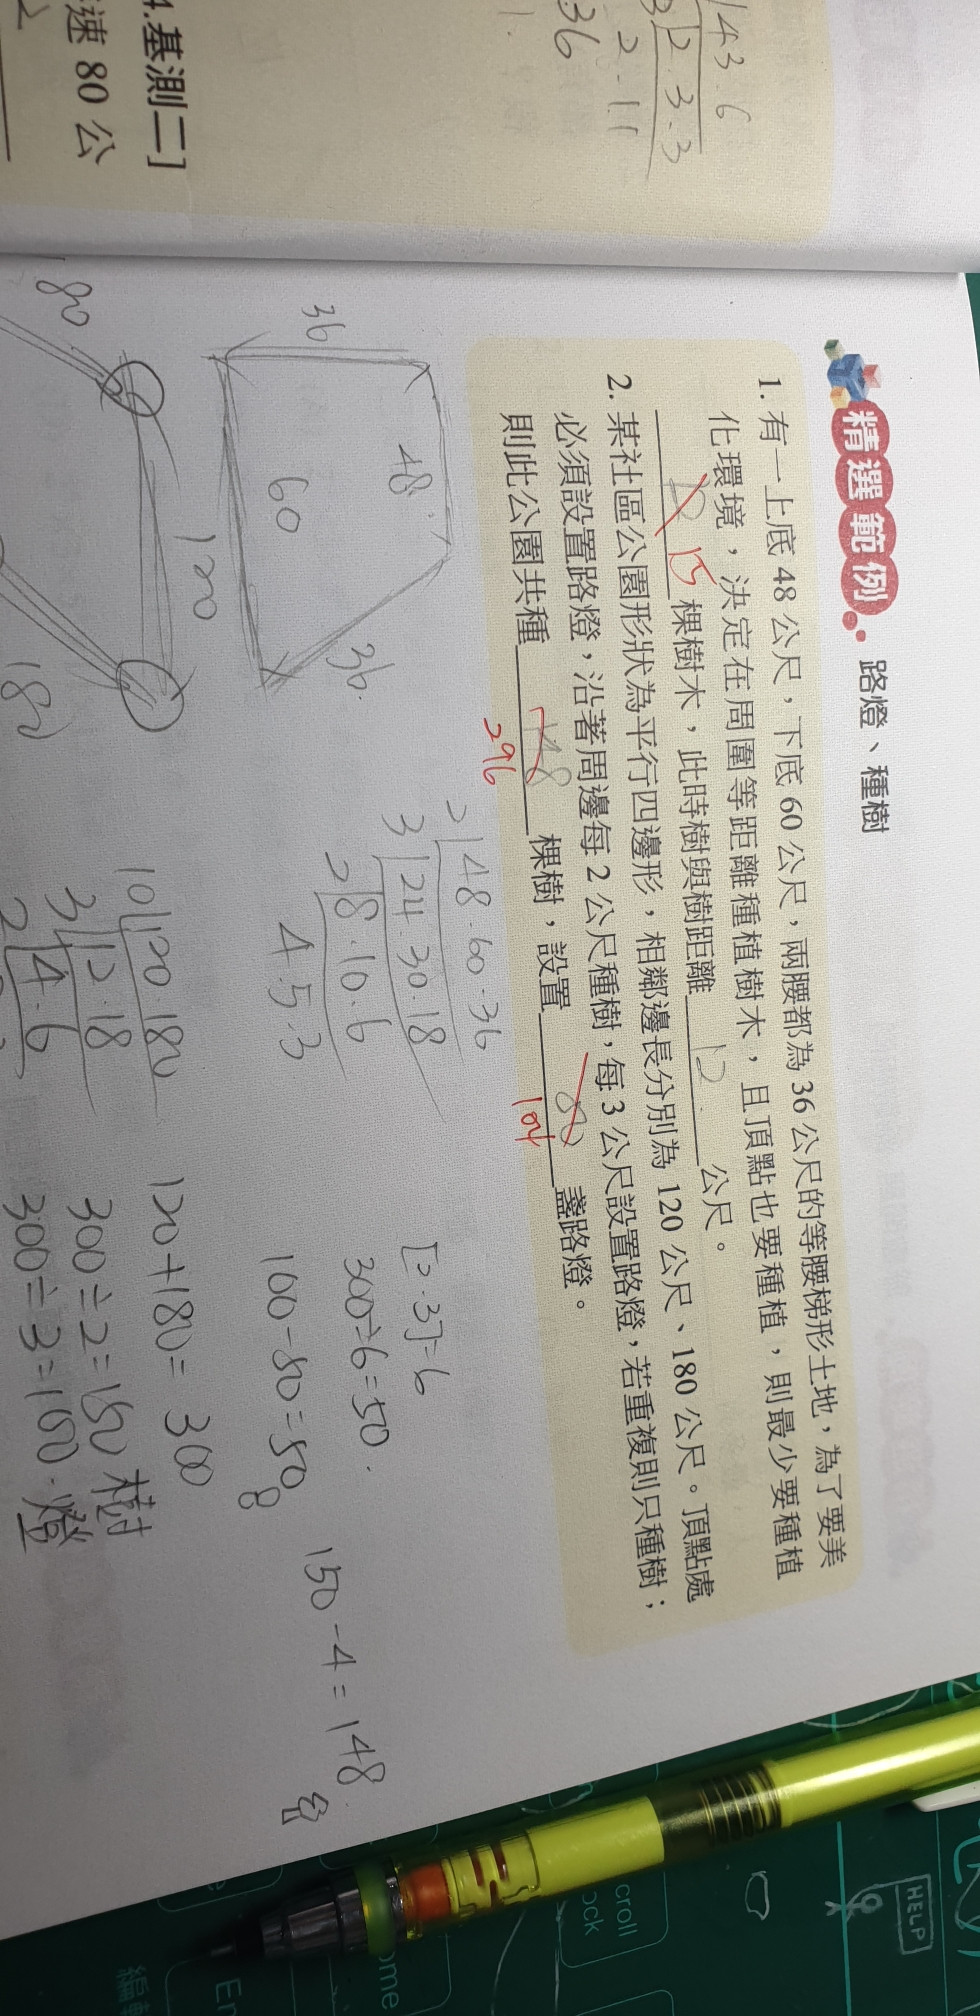 143.6
3 12.3.3
2.11
36
1.
4.基測二]
速 80 公
精選範例 路燈、種樹
1. 有一上底 48 公尺，下底 60 公尺，兩腰都為 36 公尺的等腰梯形土地，為了要美
化環境，決定在周圍等距離種植樹木，且頂點也要種植，則最少要種植
12 15 棵樹木，此時樹與樹距離 12 公尺。
2. 某社區公園形狀為平行四邊形，相鄰邊長分別為 120 公尺、180 公尺。頂點處
必須設置路燈，沿著周邊每 2 公尺種樹，每 3 公尺設置路燈，若重複則只種樹；
則此公園共種 148 棵樹，設置 盞路燈。
296 104
36
48
60
36.
2 48.60.36
3 24.30.18
2 8.10.6
4.5.3
[2.3]=6
300÷6=50.
100-50=50
150-4=148
180
120
180
10 120.180
3 12.18
2 4.6
120+180=300
300÷2=150 樹
300÷3=100.燈
HELP
croll
ock
ome
En
編輯